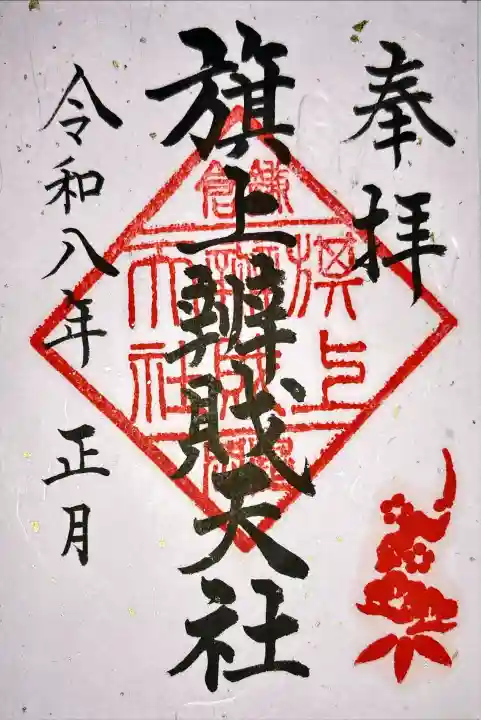 奉拝
旗上辨財天社
令和八年 正月